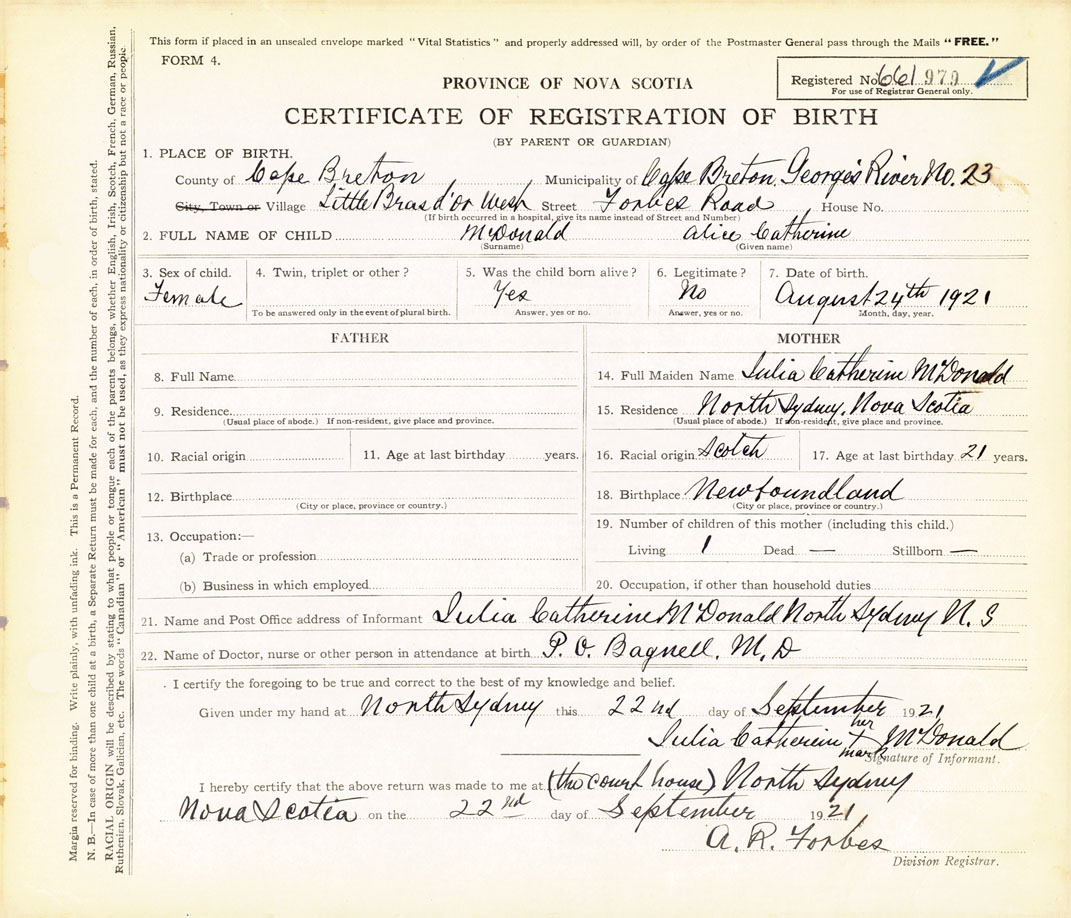 This form if placed in an unsealed envelope marked "Vital Statistics" and properly addressed will, by order of the Postmaster General pass through the Mails "FREE."
FORM 4.
Registered No. 661 979
For use of Registrar General only.
PROVINCE OF NOVA SCOTIA
CERTIFICATE OF REGISTRATION OF BIRTH
(BY PARENT OR GUARDIAN)
1. PLACE OF BIRTH.
County of Cape Breton Municipality of Cape Breton, Georges River No. 23
City, Town or Village Little Bras d'or West Street Forbes Road House No.
(If birth occurred in a hospital, give its name instead of Street and Number)
2. FULL NAME OF CHILD McDonald Alice Catherine
(Surname) (Given name)
3. Sex of child. 4. Twin, triplet or other? 5. Was the child born alive? 6. Legitimate? 7. Date of birth.
Female Yes No August 24th 1921
To be answered only in the event of plural birth. Answer, yes or no. Answer, yes or no. Month, day, year.
FATHER
8. Full Name
9. Residence
(Usual place of abode.) If non-resident, give place and province.
10. Racial origin 11. Age at last birthday years.
12. Birthplace
(City or place, province or country.)
13. Occupation:—
(a) Trade or profession
(b) Business in which employed
MOTHER
14. Full Maiden Name Julia Catherine McDonald
15. Residence North Sydney, Nova Scotia
(Usual place of abode.) If non-resident, give place and province.
16. Racial origin Scotch 17. Age at last birthday 21 years.
18. Birthplace Newfoundland
(City or place, province or country.)
19. Number of children of this mother (including this child.)
Living 1 Dead — Stillborn —
20. Occupation, if other than household duties
21. Name and Post Office address of Informant Julia Catherine McDonald North Sydney N. S
22. Name of Doctor, nurse or other person in attendance at birth P. O. Bagnell, M. D
I certify the foregoing to be true and correct to the best of my knowledge and belief.
Given under my hand at North Sydney this 22nd day of September 1921
Julia Catherein her mark McDonald
Signature of Informant.
I hereby certify that the above return was made to me at (the court house) North Sydney
Nova Scotia on the 22nd day of September 1921
A. R. Forbes
Division Registrar.
Margin reserved for binding. Write plainly, with unfading ink. This is a Permanent Record.
N. B.—In case of more than one child at a birth, a Separate Return must be made for each, and the number of each, in order of birth, stated.
RACIAL ORIGIN will be described by stating to what people or tongue each of the parents belongs, whether English, Irish, Scotch, French, German, Russian,
Ruthenian, Slovak, Galician, etc. The words "Canadian" or "American" must not be used, as they express nationality or citizenship but not a race or people.